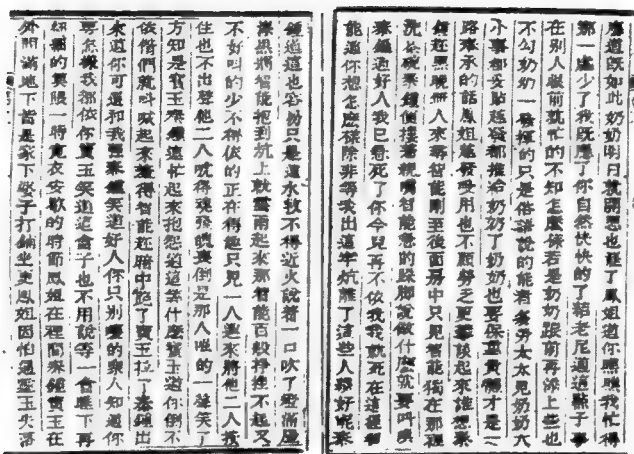 應道既如此奶奶明日就開恩也罷了鳳姐道你瞧瞧我忙得
那一處少了我既應了你自然快快的了結老尼道這點子事
在别人跟前就忙的不知怎麽樣若是奶奶跟前再添上些也
不勾奶奶一發揮的只是俗語說的能者多勞太太見奶奶大
小事都妥貼越發都推給奶奶了奶奶也要保重貴體才是一
路奉承的話鳳姐越發受用也不顧勞乏更攀談起來誰想秦
鐘趁黑晚無人來尋智能剛至後面房中只見智能獨在那裡
洗茶碗秦鐘便摟着親嘴智能急的跺脚說做什麽就要叫喚
秦鐘道好人我已急死了你今兒再不依我我就死在這裡智
能道你想怎麽樣除非等我出這牢坑離了這些人纔好呢秦
鐘道這也容易只是遠水救不得近火說着一口吹了燈滿屋
漆黑將智能抱到炕上就雲雨起來那智能百般挣挫不起又
不好叫的少不得依的正在得趣只見一人進來將他二人按
住也不出聲他二人唬得魂飛魄喪倒是那人嗤的一聲笑了
方知是寳玉秦鐘連忙起來抱怨道這筭什麽寳玉道你倒不
依偺們就叫喊起來羞得智能趁暗中跑了寳玉拉了秦鐘出
來道你可還和我强秦鐘笑道好人你只别嚷的衆人知道你
要怎樣我都依你寳玉笑道這會子也不用說等一會睡下再
細細的算賬一時寛衣安歇的時節鳳姐在裡間秦鐘寳玉在
外間滿地下皆是家下婆子打鋪坐更鳳姐因怕通靈玉失落